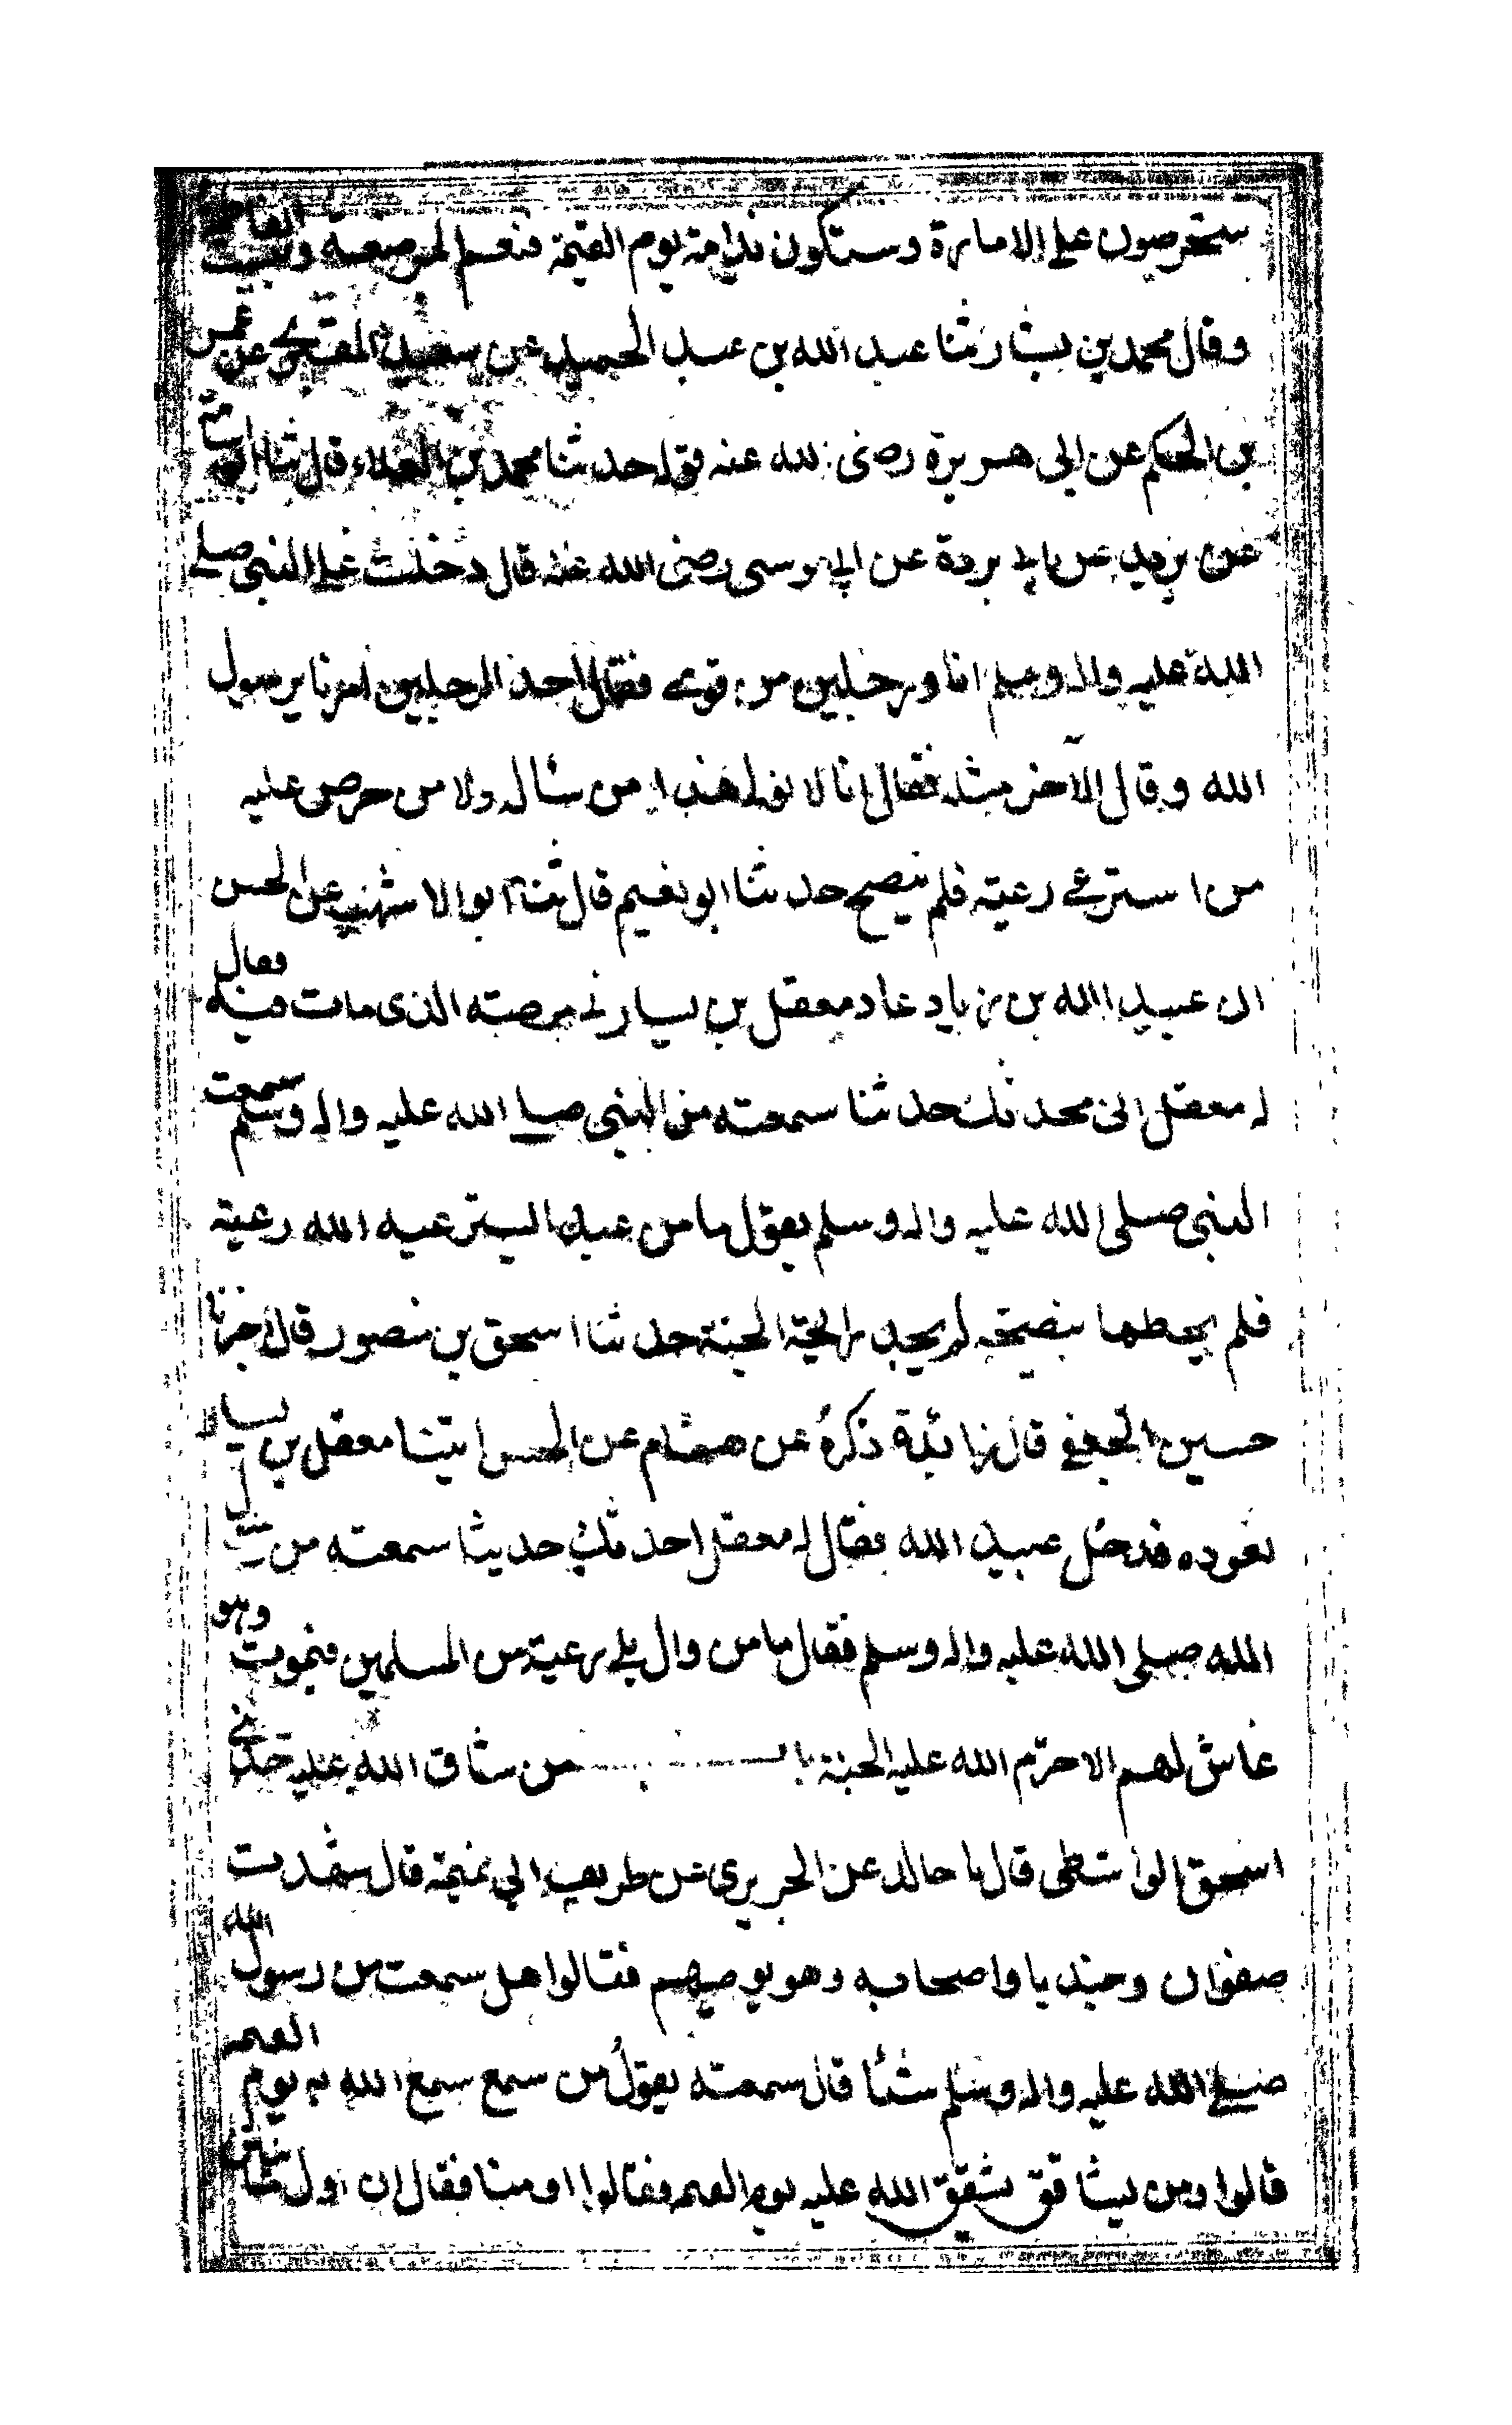 ستحرصون على الامارة وستكون ندامة يوم القيمة فنعم المرضعة وبئست الفاطمة
وقال محمد بن بشار ثنا عبد الله بن عبد الحميد عن سعيد المقبري عن عمر
بن الحكم عن ابى هريرة رضى الله عنه قوله حدثنا محمد بن العلاء قال ثنا ابو اسامة
عن بريد عن ابي بردة عن ابي موسى رضى الله عنه قال دخلت على النبى صلى
الله عليه واله وسلم انا ورجلين من قومى فقال احد الرجلين امرنا يرسول
الله وقال الآخر مثله فقال انا لا نولى هذا من سأله ولا من حرص عليه
من استرعى رعية فلم ينصح حدثنا ابو نعيم قال ثنا ابو الاشهب عن الحسن
ان عبيد الله بن زياد عاد معقل بن يسار في مرضه الذى مات فيه فقال
له معقل انى محدثك حدثنا سمعته من النبى صلى الله عليه واله وسلم سمعت
النبى صلى الله عليه واله وسلم يقول ما من عبد استرعيه الله رعية
فلم يحطها بنصيحة لم يجد رايحة الجنة حدثنا اسحق بن منصور قال اخبرنا
حسين الجعفي قال زائدة ذكره عن هشام عن الحسن اتينا معقل بن يسار
نعوده فدخل عبيد الله فقال له معقل احدثك حديثا سمعته من رسول
الله صلى الله عليه واله وسلم فقال ما من وال يلى رعية من المسلمين فيموت وهو
غاش لهم الا حرم الله عليه الجنة باب من شاق الله عليه حدثنى
اسحق الواسطى قال نا خالد عن الجريرى عن طريف ابي تميمة قال شهدت
صفوان وجندبا واصحابه وهو يوصيهم فقالوا هل سمعت من رسول الله
صلى الله عليه واله وسلم شئا قال سمعته يقول من سمع سمع الله به يوم القيمة
قالوا ومن يشاقق يشقق الله عليه يوم القيمة فقالوا اوصنا فقال ان اول ما ينتن